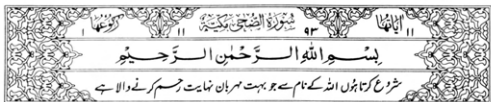 اٰیَاتُهَا ١١ سُوْرَةُ الضُّحٰى مَكِّيَّةٌ ٩٣ ١١ رُكُوْعُهَا ١
بِسْمِ اللهِ الرَّحْمٰنِ الرَّحِيْمِ
شروع کرتا ہوں اللہ کے نام سے جو بہت مہربان نہایت رحم کرنے والا ہے